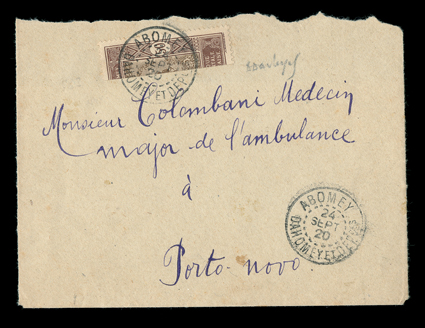 ABOMEY
DAHOMEY ET DEP.CES
Monsieur Colombani Medecin
major de l'ambulance
à
Porto-novo.
ABOMEY
24
SEPT
20
DAHOMEY ET DEP.CES